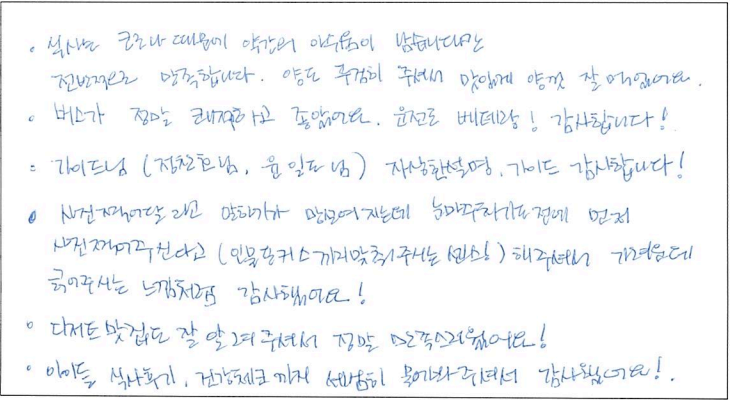 · 식사는 코로나 때문에 약간의 아쉬움이 남습니다만
전반적으로 만족합니다. 양도 푸짐히 주셔서 맛있게 양껏 잘 먹었어요.
· 버스가 정말 쾌적하고 좋았어요. 운전도 베테랑! 감사합니다!
· 가이드님 (정찬호님, 윤일도님) 자상한 설명, 가이드 감사합니다!
· 사진찍어달라고 말하기가 망설여지는데 말하기도 전에 먼저
사진찍어주신다고 (인물포커스까지 맞춰주시는 센스!) 해주셔서 가려운데
긁어주시는 느낌처럼 감사했어요!
· 디저트 맛집도 잘 알려주셔서 정말 만족스러웠어요!
· 아이들 식사후기, 건강체크까지 세심히 물어봐주셔서 감사했어요!.